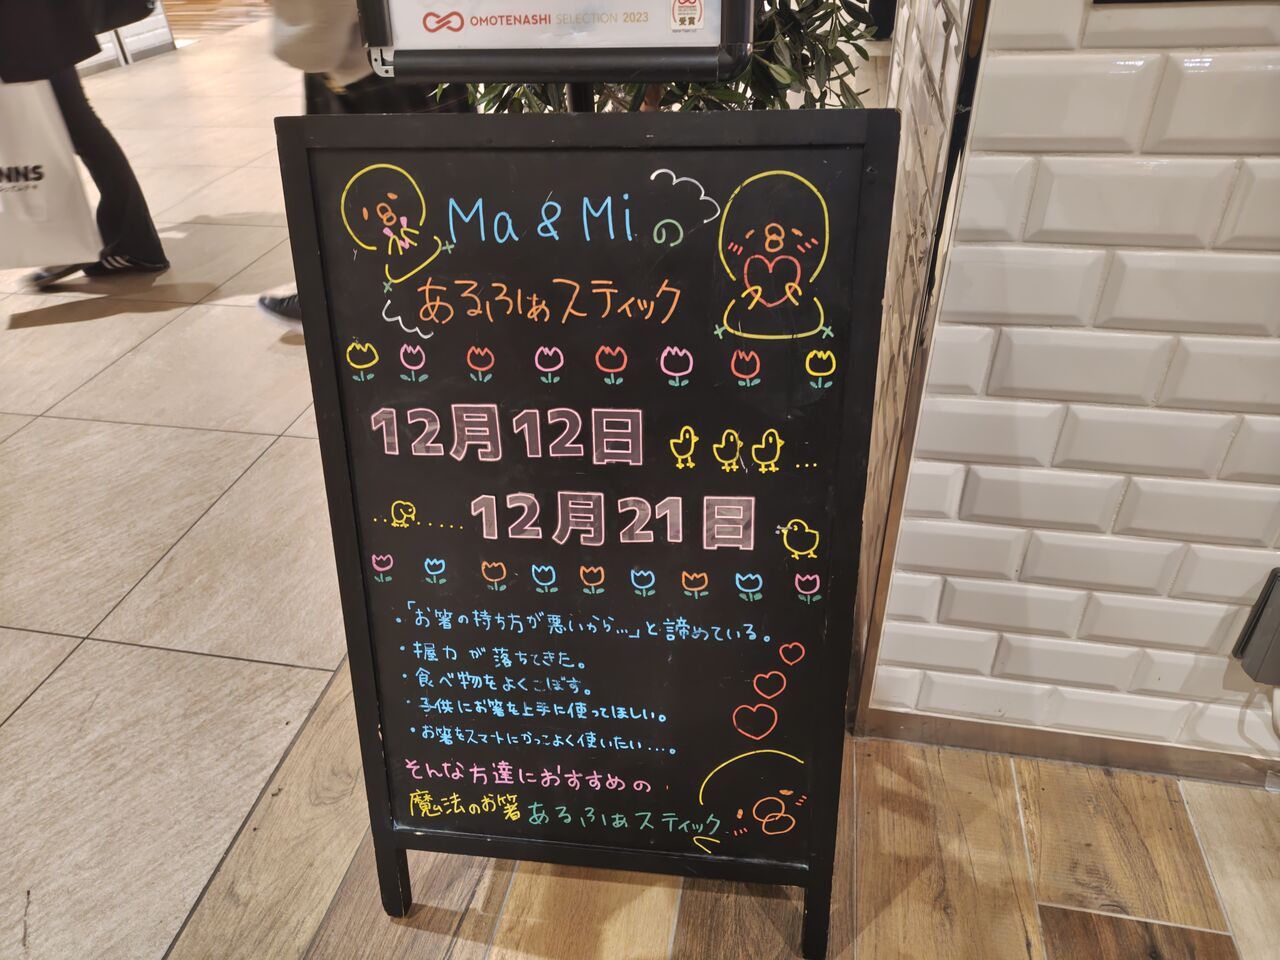 OMOTENASHI SELECTION 2023
受賞
NNS
Ma & Mi の
あるふぁスティック
12月12日 ...
........ 12月21日
・「お箸の持ち方が悪いから...」と諦めている。
・握力が落ちてきた。
・食べ物をよくこぼす。
・子供にお箸を上手に使ってほしい。
・お箸をスマートにかっこよく使いたい...。
そんな方達におすすめの
魔法のお箸あるふぁスティック